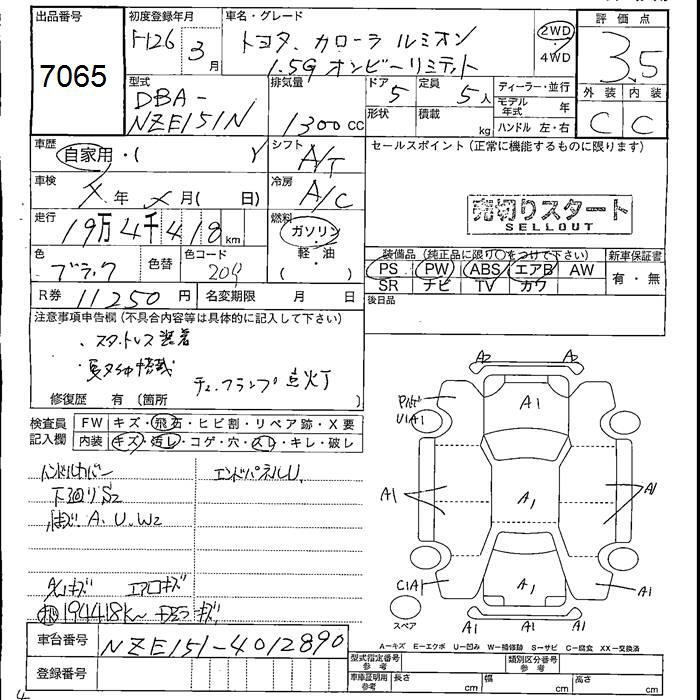 出品番号
7065
初度登録年月
H26 3月
車名・グレード
トヨタ カローラ ルミオン
1.5G オンビーリミテット
2WD
・
4WD
評価点
3.5
外装 内装
C C
型式
DBA-
NZE151N
排気量
1300cc
ドア 5
定員 5人
形状
積載 kg
ディーラー・並行
モデル年式 年
ハンドル 左・右
車歴
自家用・( )
シフト
A/T
セールスポイント(正常に機能するものに限ります)
車検
年 月( 日)
冷房
A/C
売切りスタート
SELLOUT
走行
19万4千418km
燃料
ガソリン
・
軽・油
( )
色
ブラック
色替
色コード
209
装備品(純正品に限り○をつけて下さい)
新車保証書
PS PW ABS エアB AW
SR ナビ TV カワ
有・無
R券 11250円
名変期限 月 日
後日品
注意事項申告欄(不具合内容等は具体的に記入して下さい)
スタットレス装着
夏タイヤ搭載
チェックランプ点灯
修復歴 有(箇所 )
検査員
記入欄
FW キズ・飛石・ヒビ割・リペア跡・X要
内装 キズ・汚レ・コゲ・穴・スレ・キレ・破レ
ハンドルカバー
エンドパネルU
下廻りS2
A、U、W2
エアロキズ
194418K~
A2 A2
A1
U1A1
A1 A1 A1
C1A1 A1 A1
A1 A1 A1
スペア
車台番号
NZE151-4012890
登録番号
A-キズ E-エクボ U-凹み W-補修跡 S-サビ C-腐食 XX-交換済
型式指定番号
参考
類別区分番号
参考
車庫証明用
参考
長さ cm
幅 cm
高さ cm